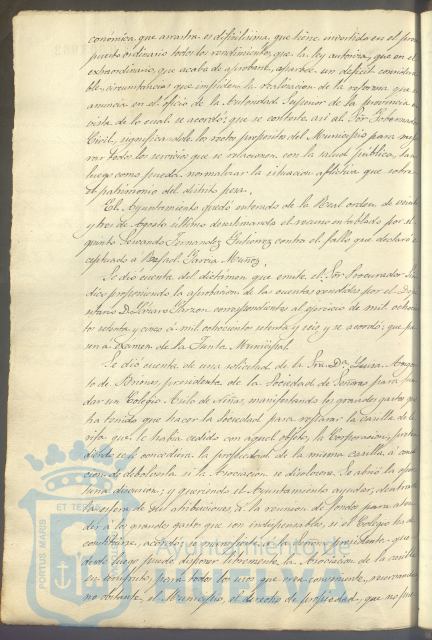 conómica, que arrastra es dificilísima, que tiene invertido en el pre
puesto ordinario todos los rendimientos que la ley autoriza, que en el
extraordinario, que acaba de aprobarse, aparece un deficit considera
ble, circunstancias que impiden la realizacion de la reforma que
anuncia en el oficio de la Autoridad Superior de la provincia, en
vista de lo cual se acordó; que se conteste así al Sor. Gobernador
Civil, significandole los rectos propositos del Municipio para mejo
rar todos los servicios que se relacionen con la salud pública, tan
luego como pueda normalizar la situacion aflictiva que sobre
el patrimonio del distrito pesa.
El Ayuntamiento quedó enterado de la Real orden de veinte
y tres de Agosto último desestimando el recurso entablado por el
quinto Fernandez Gutierrez contra el fallo que declaró
esceptuado a Rafael Garcia Muñoz.
Se dió cuenta del dictámen que emite el Sor. Procurador Sín
dico proponiendo la aprobacion de las cuentas rendidas por el Depo
sitario D. Lázaro Garzon correspondientes al ejercicio de mil ochocien
tos setenta y cinco á mil ochocientos setenta y seis y se acordó; que pa
sen a exámen de la Junta Municipal.
Se dió cuenta de una solicitud de la Sra. Da. Luisa
de Briones, presidenta de la Sociedad de Señoras para fun
dar un Colegio Asilo de Niñas, manifestando los grandes gastos que
ha tenido que hacer la Sociedad para reparar la casilla de la
rifa que le habia cedido con aquel objeto, la Corporacion, preten
diendo se le concediera la propiedad de la misma casilla, á condi
cion de debolverla si la Asociacion se disolviera. Se abrió la opor
tuna discusion; y queriendo el Ayuntamiento ayudar, dentro de
la esfera de sus atribuciones, á la reunion de fondos para aten
der á los grandes gastos que son indispensables, si el Colegio ha de
constituirse, acordó; se manifieste á la Señora presidenta que
desde luego puede disponer libremente, la Asociacion de la casilla
en usufruto, para todos los usos que crea conveniente, reservando
no obstante, el Municipio, el derecho de propiedad, que no pue
PORTUS MARIS
ET TERRE
Ayuntamiento de